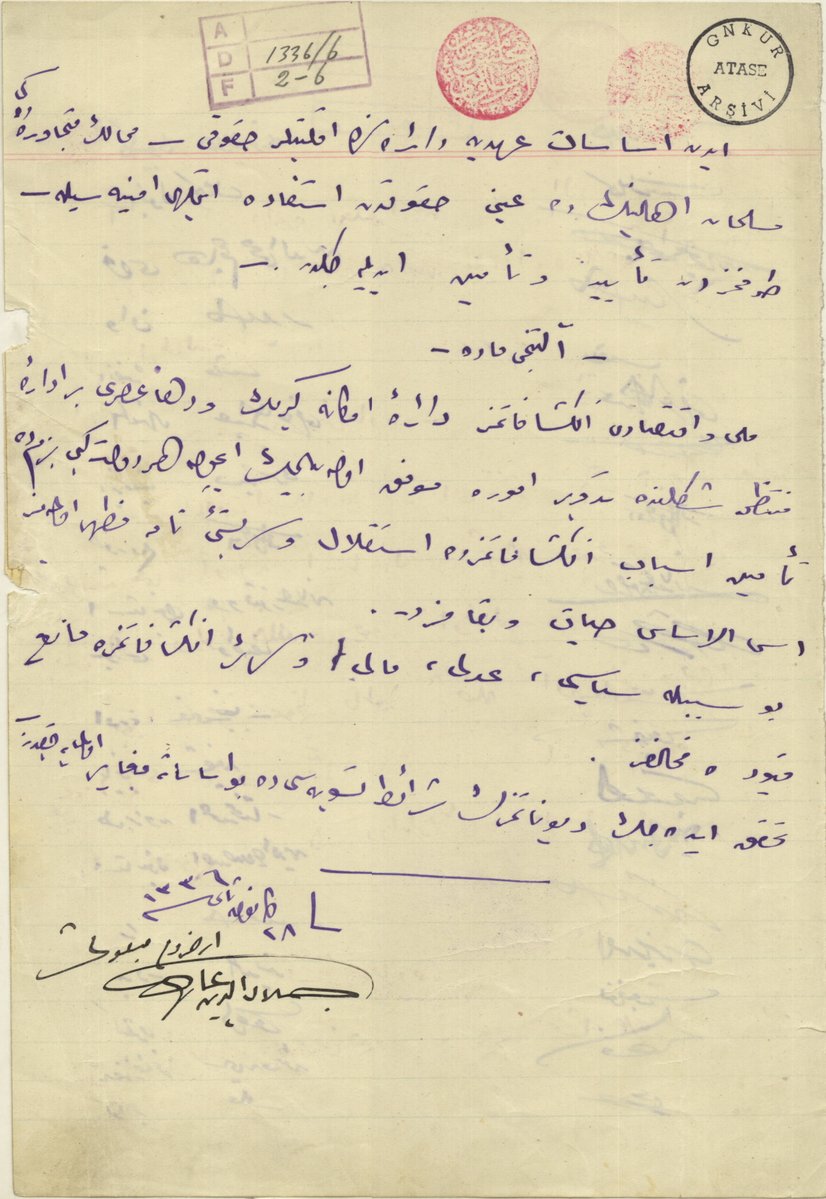 A
D
F
1336/6
2-6
GNKUR
ATASE
ARŞİVİ
ایدن اساسات عهدیه دائره‌سنده اقلیتلر حقوقی ـ ممالك متجاوره‌ده‌كی
مسلمان اهالینك ده عینی حقوقدن استفاده ایتملری امنیه‌سیله ـ
طرفمزدن تأیید و تأمین ایدیله‌جكدر . ـ
ـ آلتنجی ماده ـ
ملی و اقتصادی انكشافاتمز دائرهٔ امكانه كیرمك و دها عصری بر ادارهٔ
منتظمه شكلنده تدویر اموره موفق اوله‌بیلمك ایچون هر دولت كبی بزم ده
تأمین اسباب انكشافاتمزده استقلال و سربستئ تامه مظهر اولمه‌مز
اس الاساس حیات و بقامزدر .
بو سببله سیاسی ، عدلی ، مالی و سائر انكشافاتمزه مانع
قیوده مخالفز .
تحقق ایده‌جك دیوناتمزك شرائط تسویه‌سی ده بو اساساته مغایر اولمایه‌جقدر ـ
٢٨ كانون ثانی سنه ١٣٣٦
ارضروم مبعوثی
جلال الدین عارف